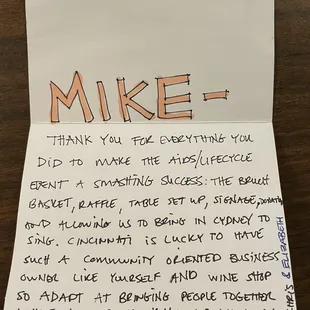 MIKE-
THANK YOU FOR EVERYTHING YOU
DID TO MAKE THE AIDS/LIFECYCLE
EVENT A SMASHING SUCCESS: THE BRUCH
BASKET, RAFFLE, TABLE SET UP, SIGNAGE,
AND ALLOWING US TO BRING IN CYDNEY TO
SING. CINCINNATI IS LUCKY TO HAVE
SUCH A COMMUNITY ORIENTED BUSINESS
OWNER LIKE YOURSELF AND WINE SHOP
SO ADAPT AT BRINGING PEOPLE TOGETHER
CHRIS & ELIZABETH